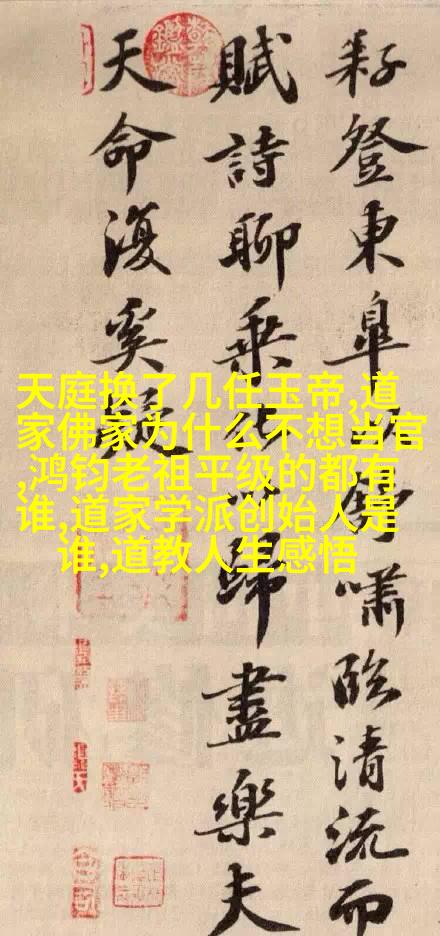 耔登東皐以舒嘯臨清流而
賦詩聊乘化以歸盡樂夫
天命復奚疑
天庭换了几任玉帝,道
家佛家为什么不想当官
,鸿钧老祖平级的都有
谁,道家学派创始人是
谁,道教人生感悟